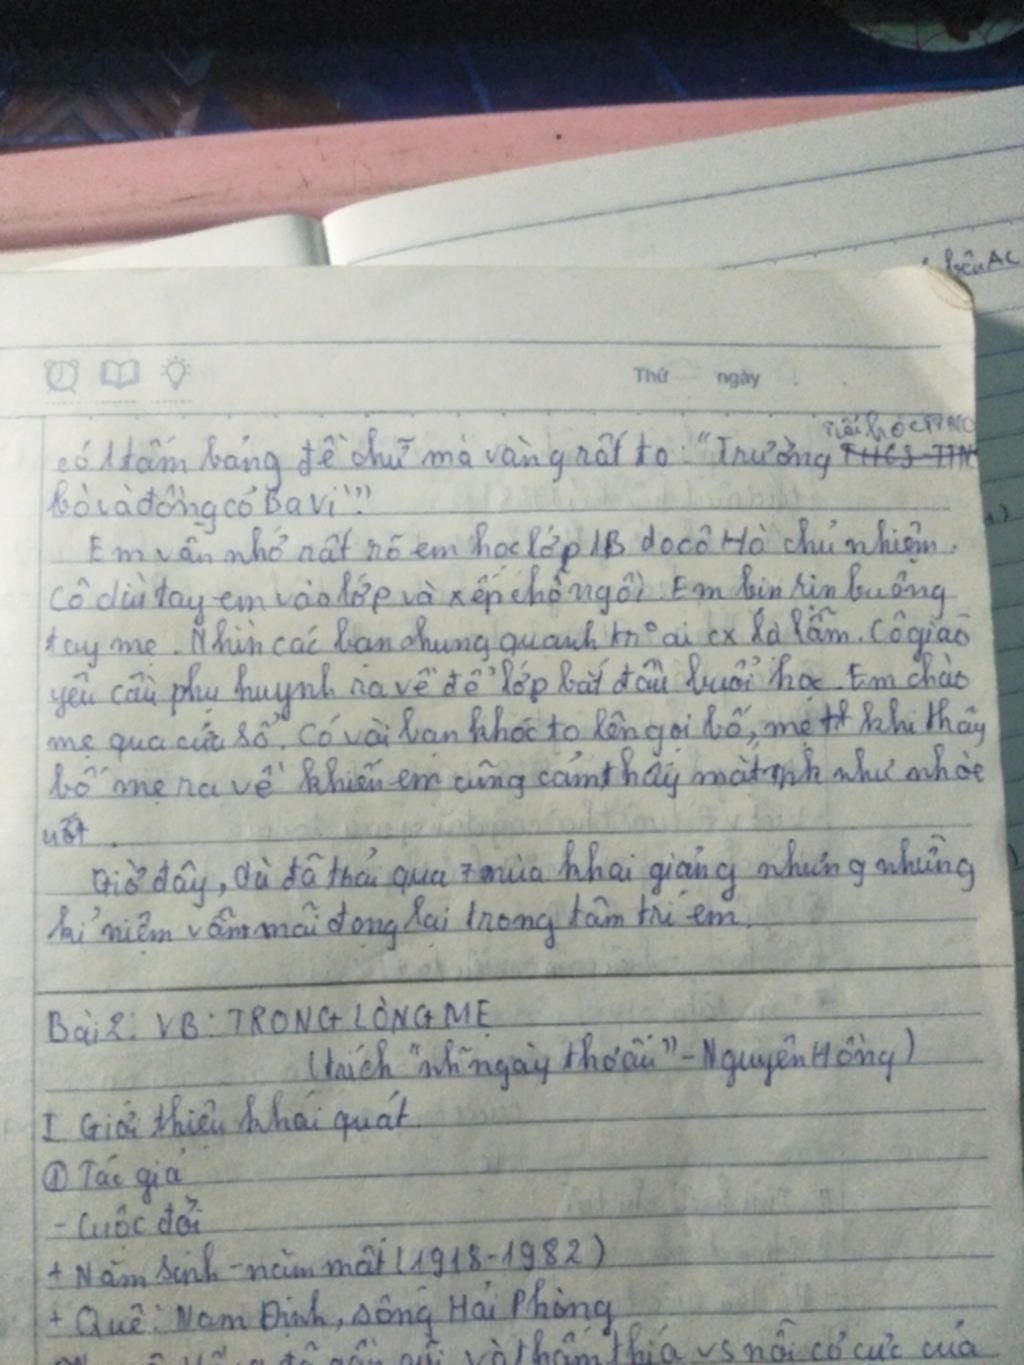 bên AC
Thứ ngày
THCS TTNC
có 1 tấm bảng đề chữ mạ vàng rất to: "Trường
bò và đồng cỏ Ba Vì".
Em vẫn nhớ rất rõ em học lớp 1B do cô Hà chủ nhiệm.
Cô dìu tay em vào lớp và xếp chỗ ngồi. Em bịn rịn buông
tay mẹ. Nhìn các bạn chung quanh ai cx lạ lẫm. Cô giáo
yêu cầu phụ huynh ra về để lớp bắt đầu buổi học. Em chào
mẹ qua cửa sổ. Có vài bạn khóc to lên gọi bố, mẹ khi thấy
bố mẹ ra về khiến em cũng cảm thấy mắt mk như nhòe
ướt.
Giờ đây, dù đã trải qua 7 mùa khai giảng nhưng những
kỉ niệm vẫn mãi đọng lại trong tâm trí em.
Bài 2: VB: TRONG LÒNG MẸ
(trích "nh~ ngày thơ ấu" - Nguyên Hồng)
I Giới thiệu khái quát
① Tác giả
- Cuộc đời
+ Năm sinh - năm mất (1918-1982)
+ Quê: Nam Định, sống Hải Phòng
và thấm thía vs nỗi cơ cực của